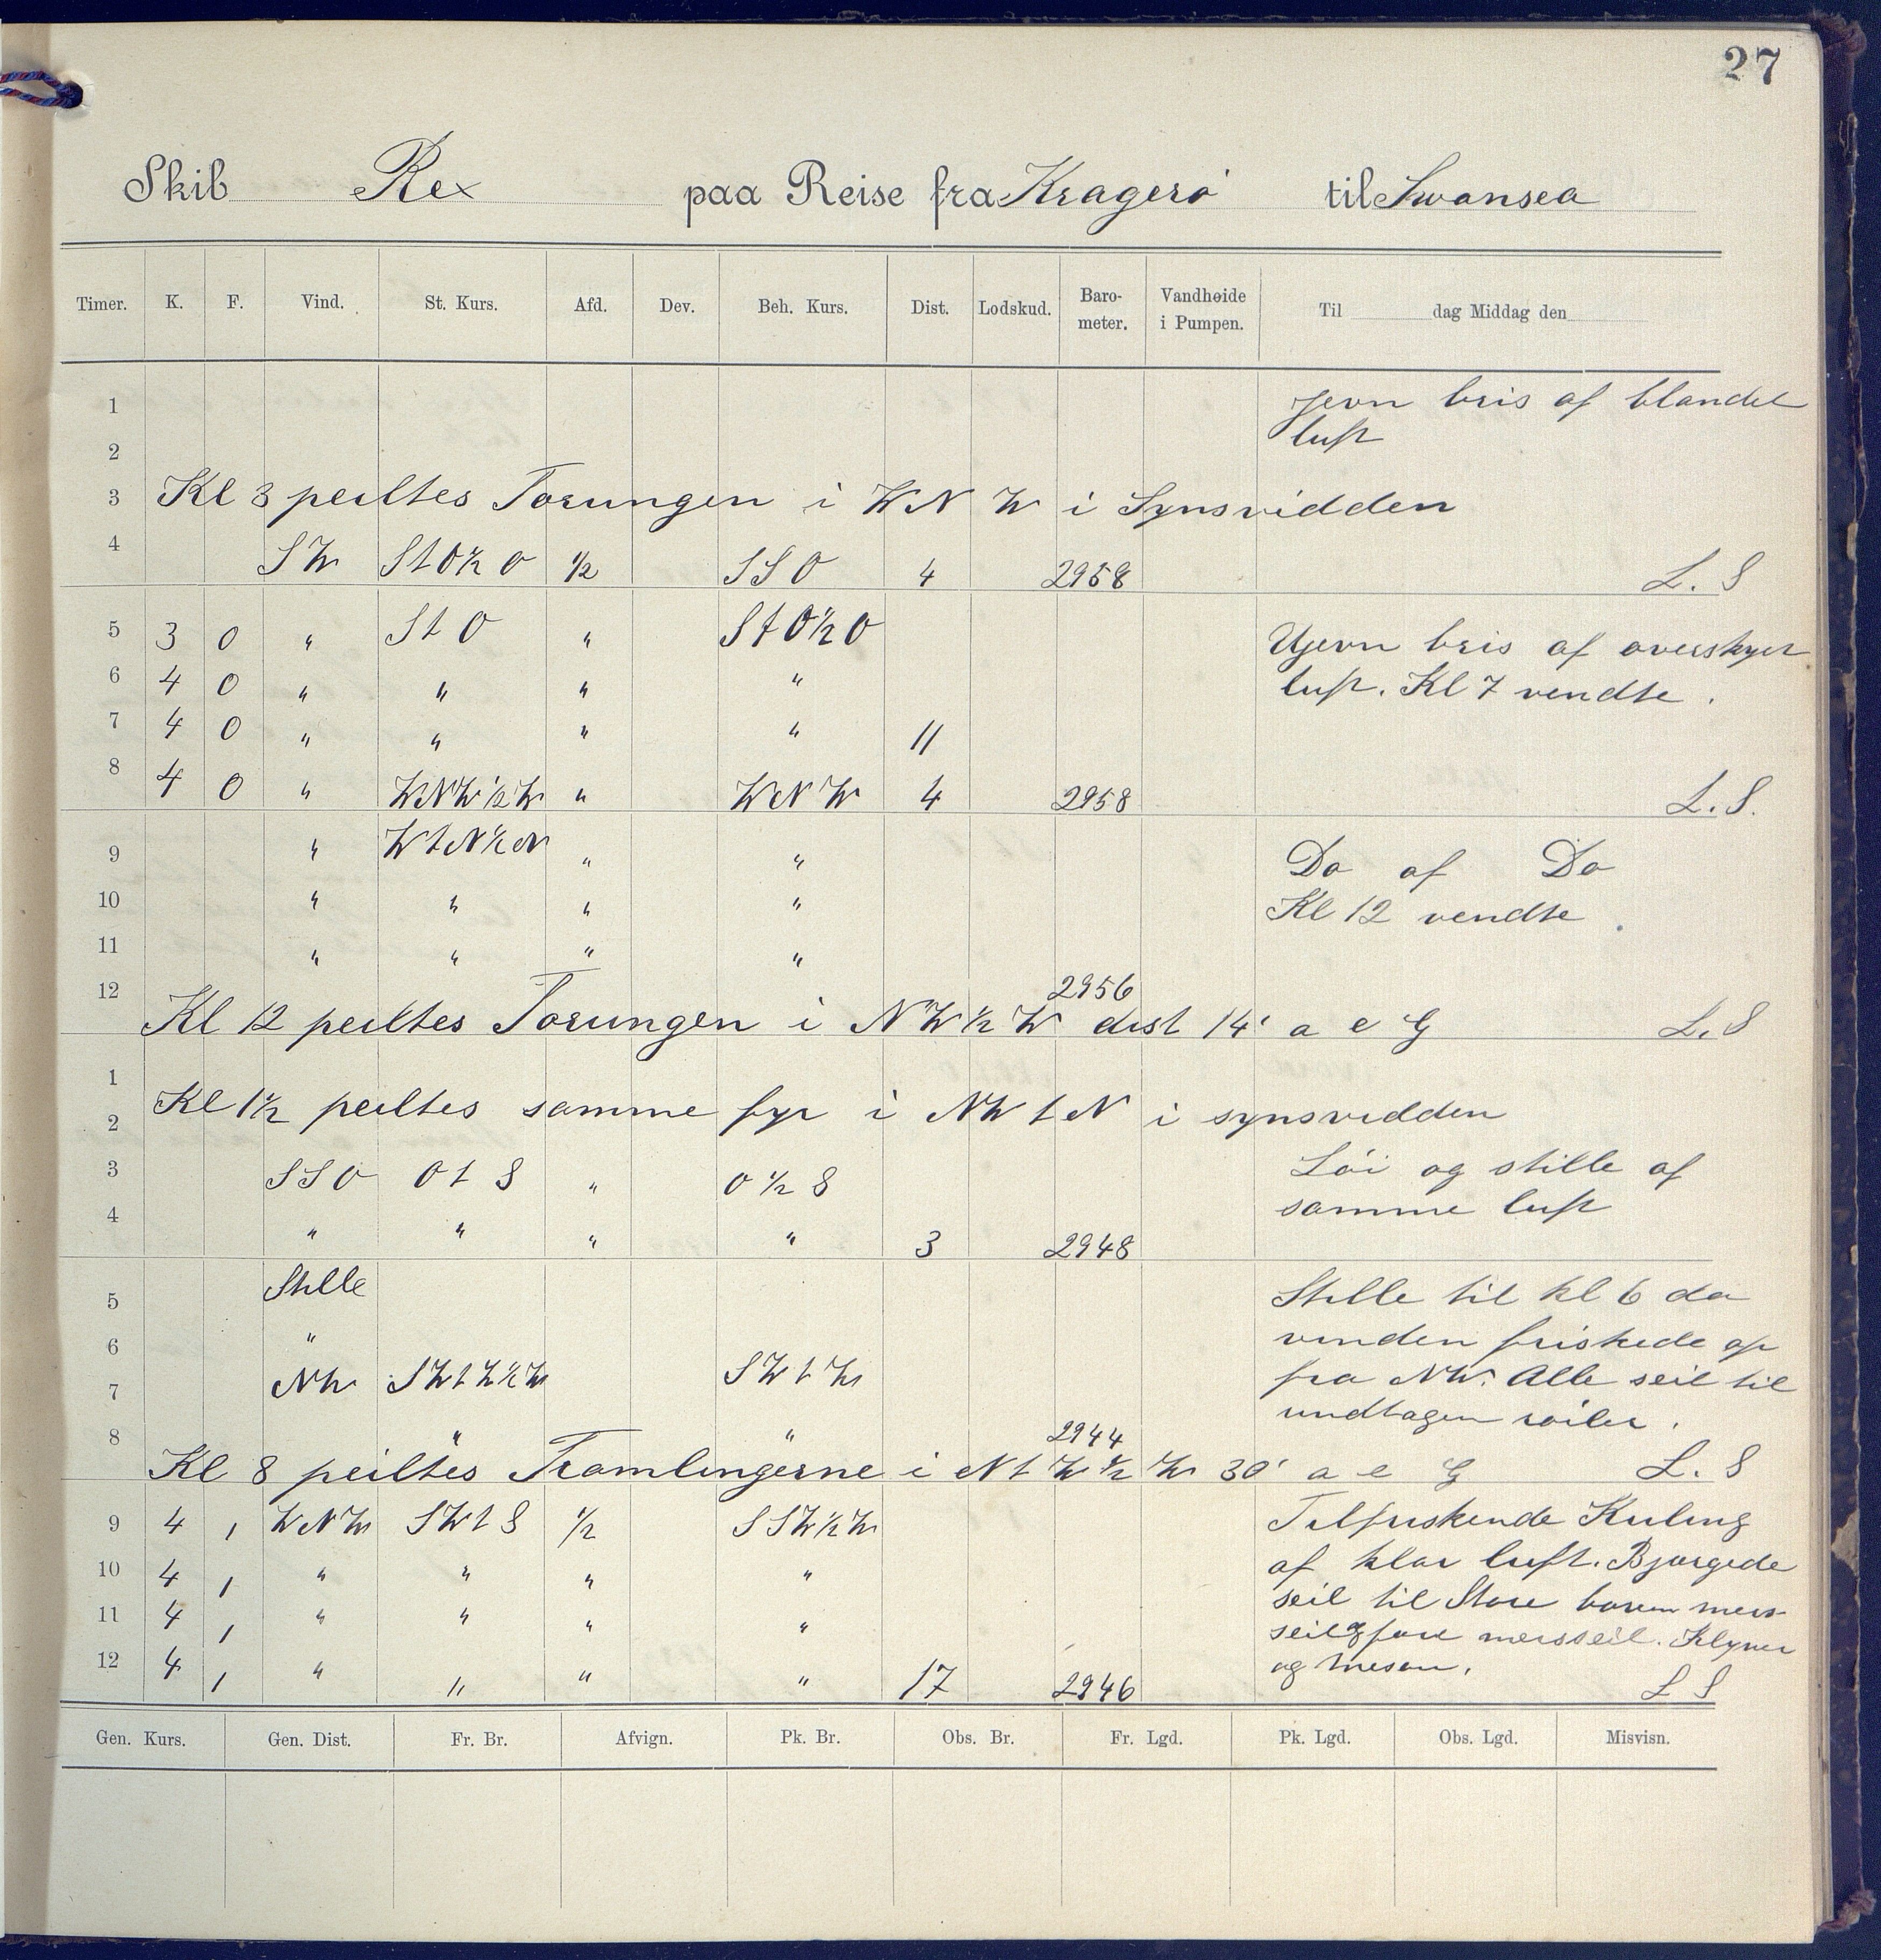 27
Skib Rex paa Reise fra Kragerö til Swansea
Timer. K. F. Vind. St. Kurs. Afd. Dev. Beh. Kurs. Dist. Lodskud. Baro-meter. Vandhøide i Pumpen. Til dag Middag den
1 Jevn bris af blandet
2 luft
3 Kl 3 peiltes Torungen i WNW i Synsvidden
4 SW StO½O ½ SSO 4 2958 L. S
5 3 0 " StO " StO½O Ujevn bris af overskyet
6 4 0 " " " " luft. Kl 7 vendte.
7 4 0 " " " " 11
8 4 0 " WNW½W " WNW 4 2958 L. S.
9 " WtN½N " " Do af Do
10 " " " " Kl 12 vendte.
11 " " " "
12 2956
Kl 12 peiltes Torungen i NW½W dist 14' a e G L. S
1
2 Kl 1½ peiltes samme fyr i NWtN i synsvidden
3 SSO OtS " O½S Löi og stille af
4 " " " " 3 2948 samme luft
5 Stille Stille til kl 6 da
6 " vinden friskede op
7 NW SWtW½W SWtW fra NW. Alle seil til
undtagen röiler.
8 " " 2944
Kl 8 peiltes Tromlingerne i NtW½W 30' a e G L. S
9 4 1 WNW SWtS ½ SSW½W Tilfriskende Kuling
10 4 1 " " " " af klar luft. Bjærgede
11 4 1 " " " " seil til Store boven mers
seil og fore mersseil. Klyver
12 4 1 " " " " 17 2946 og mesan. L S
Gen. Kurs. Gen. Dist. Fr. Br. Afvign. Pk. Br. Obs. Br. Fr. Lgd. Pk. Lgd. Obs. Lgd. Misvisn.